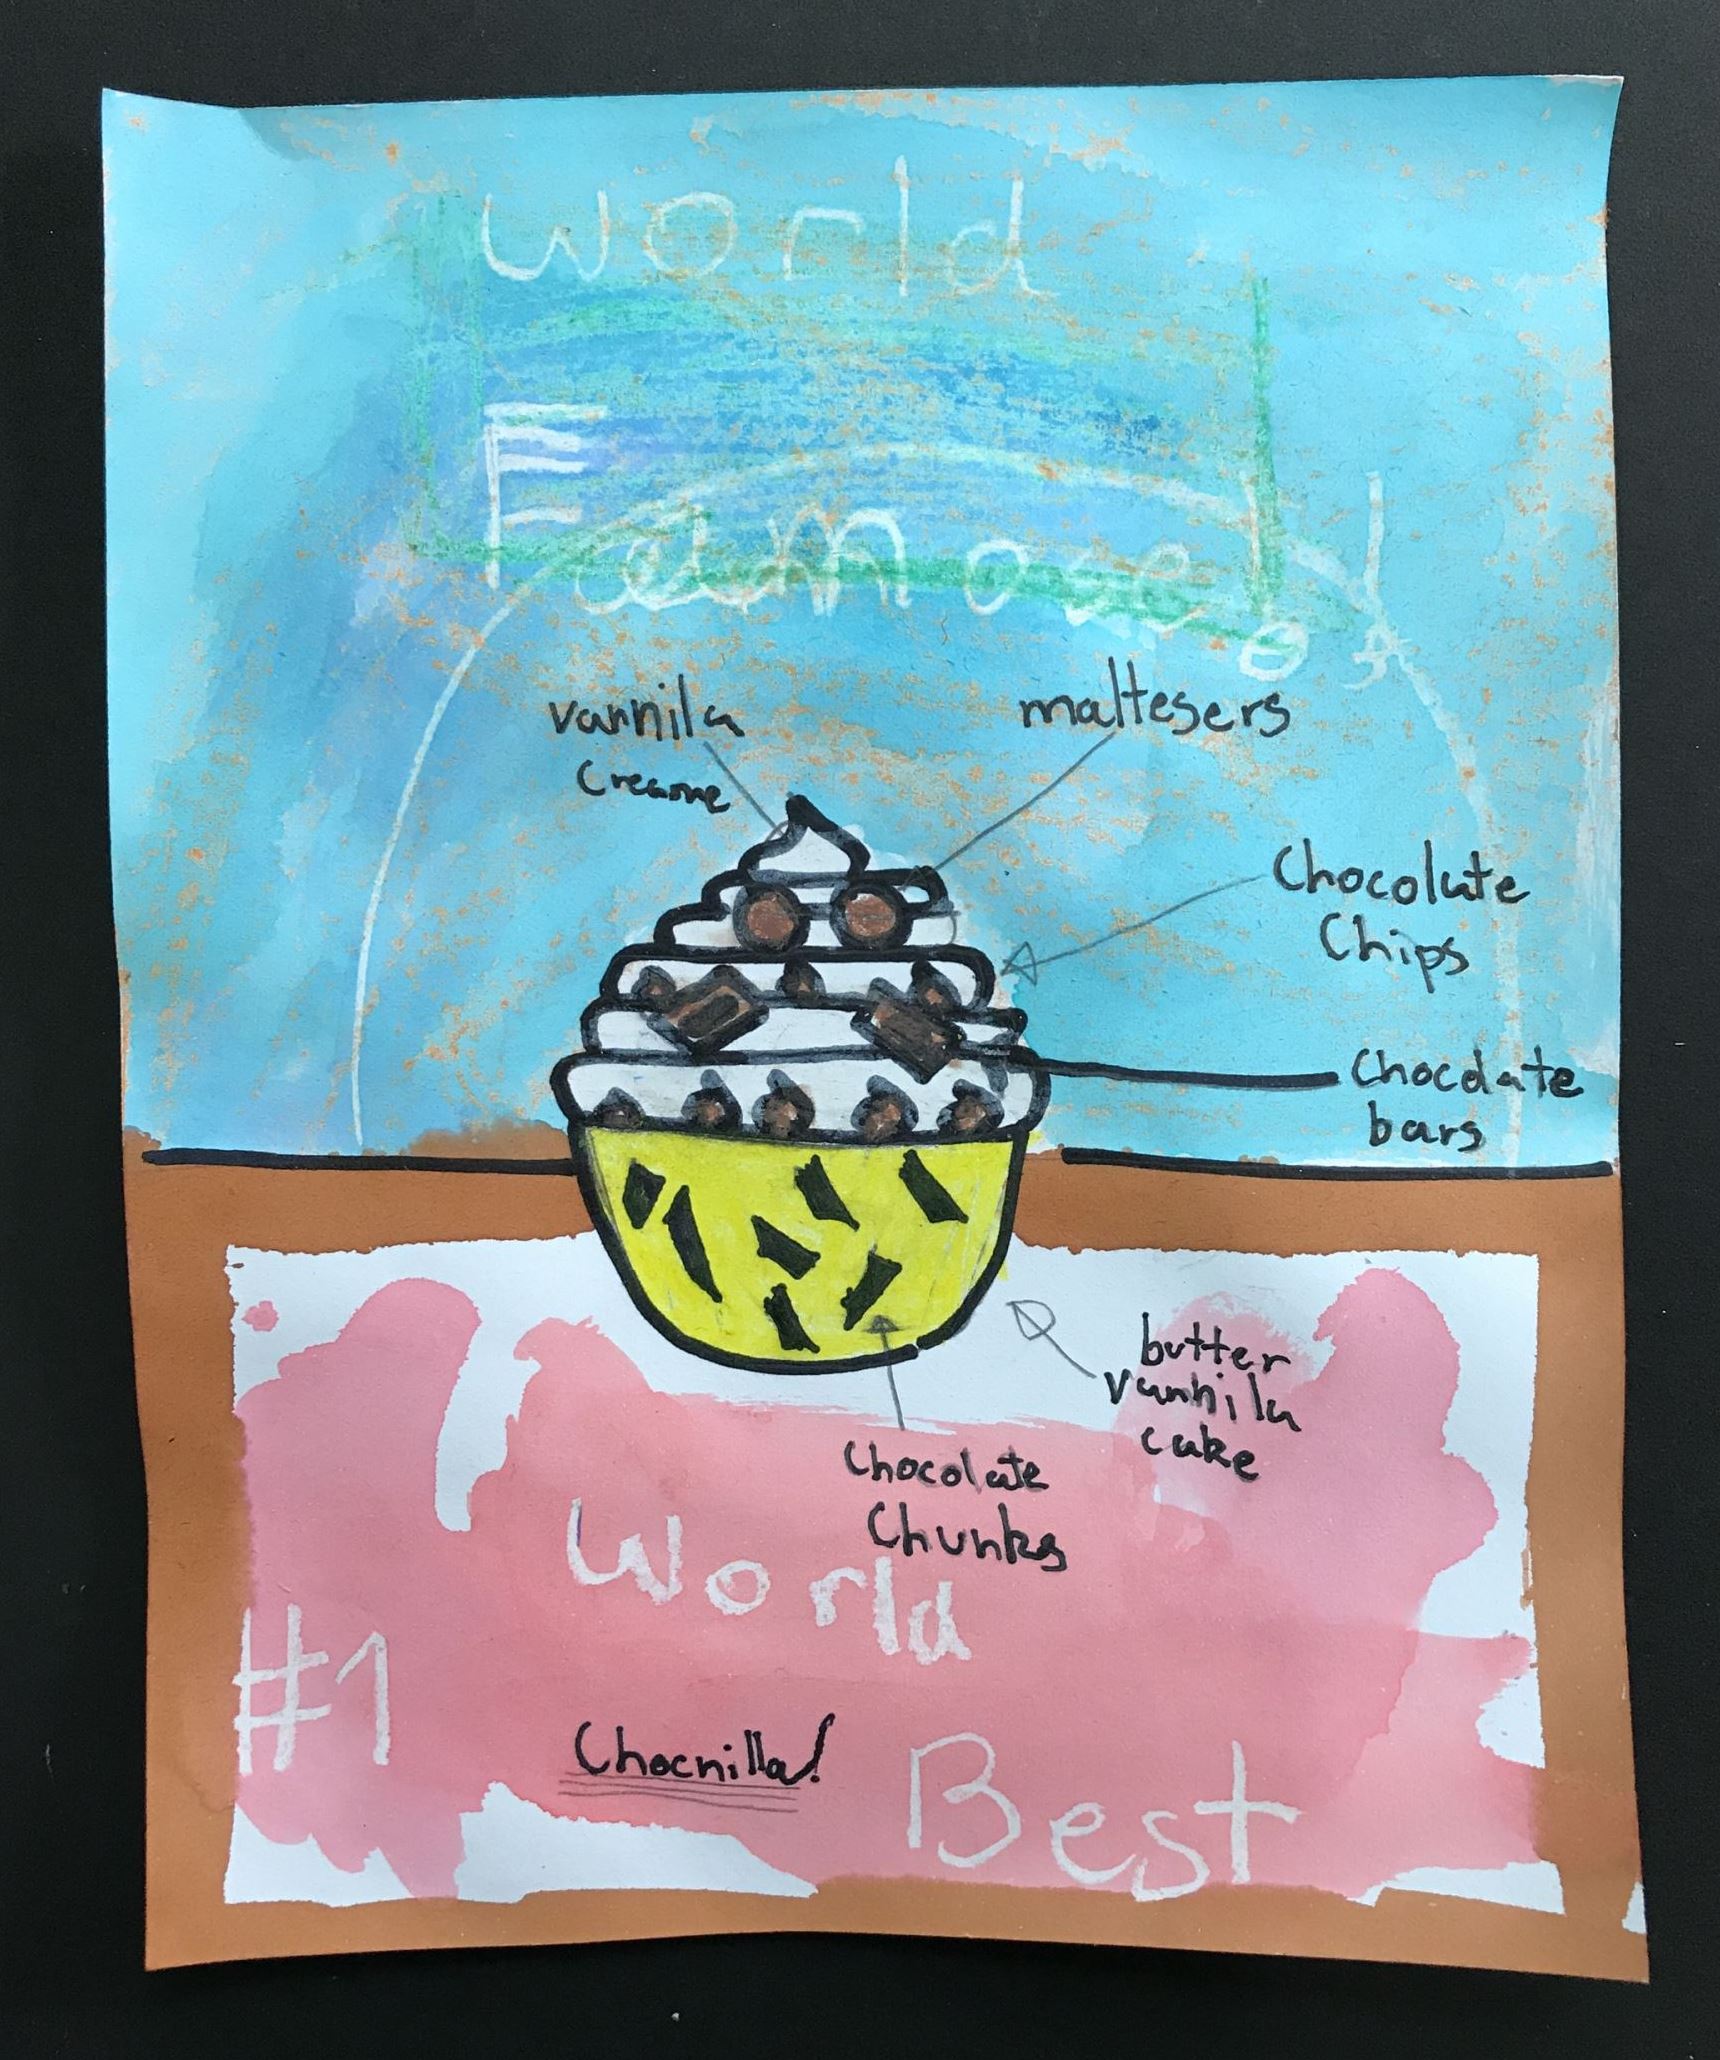 World
Famous!
vannila
Creame
maltesers
Chocolate
Chips
Chocolate
bars
butter
vannila
cake
Chocolate
Chunks
World
#1
Chocnilla!
Best